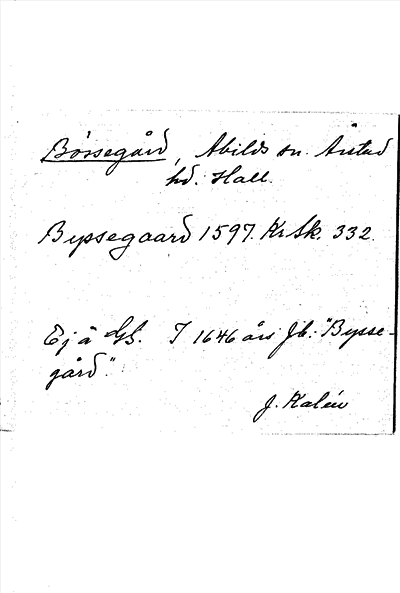 Bössegård, Abilds sn. Årstad
hd. Hall.
Byssegaard 1597. Kr Sk. 332.
Ej å GS. I 1646 års Jb: "Bysse-
gård."
J. Kalén